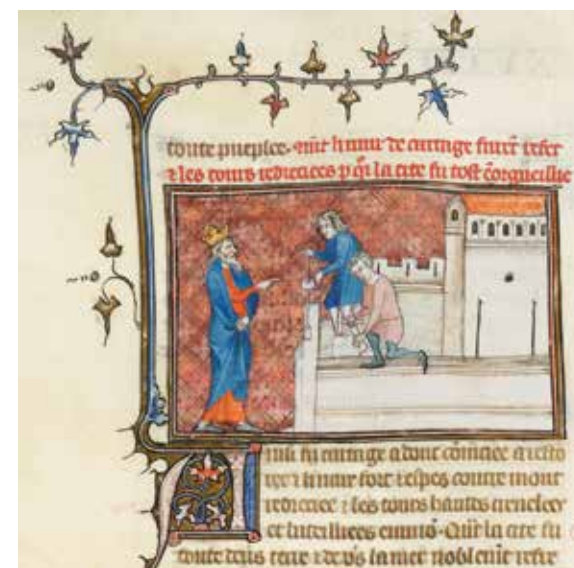 toute pueplee. li mur de cartage furẽt refet
⁊ les tours redreciees p qi la cite fu tost ẽorgueillie
Ainsi fu cartage adont cõmẽcie a resto
rer ⁊ li mur fort ⁊ espes contre mont
redrecie ⁊ les tours hautes crenelees
et bateillees enuirõ. Qũt la cite fu
toute deus terre ⁊ deus la mer noblemẽt refete